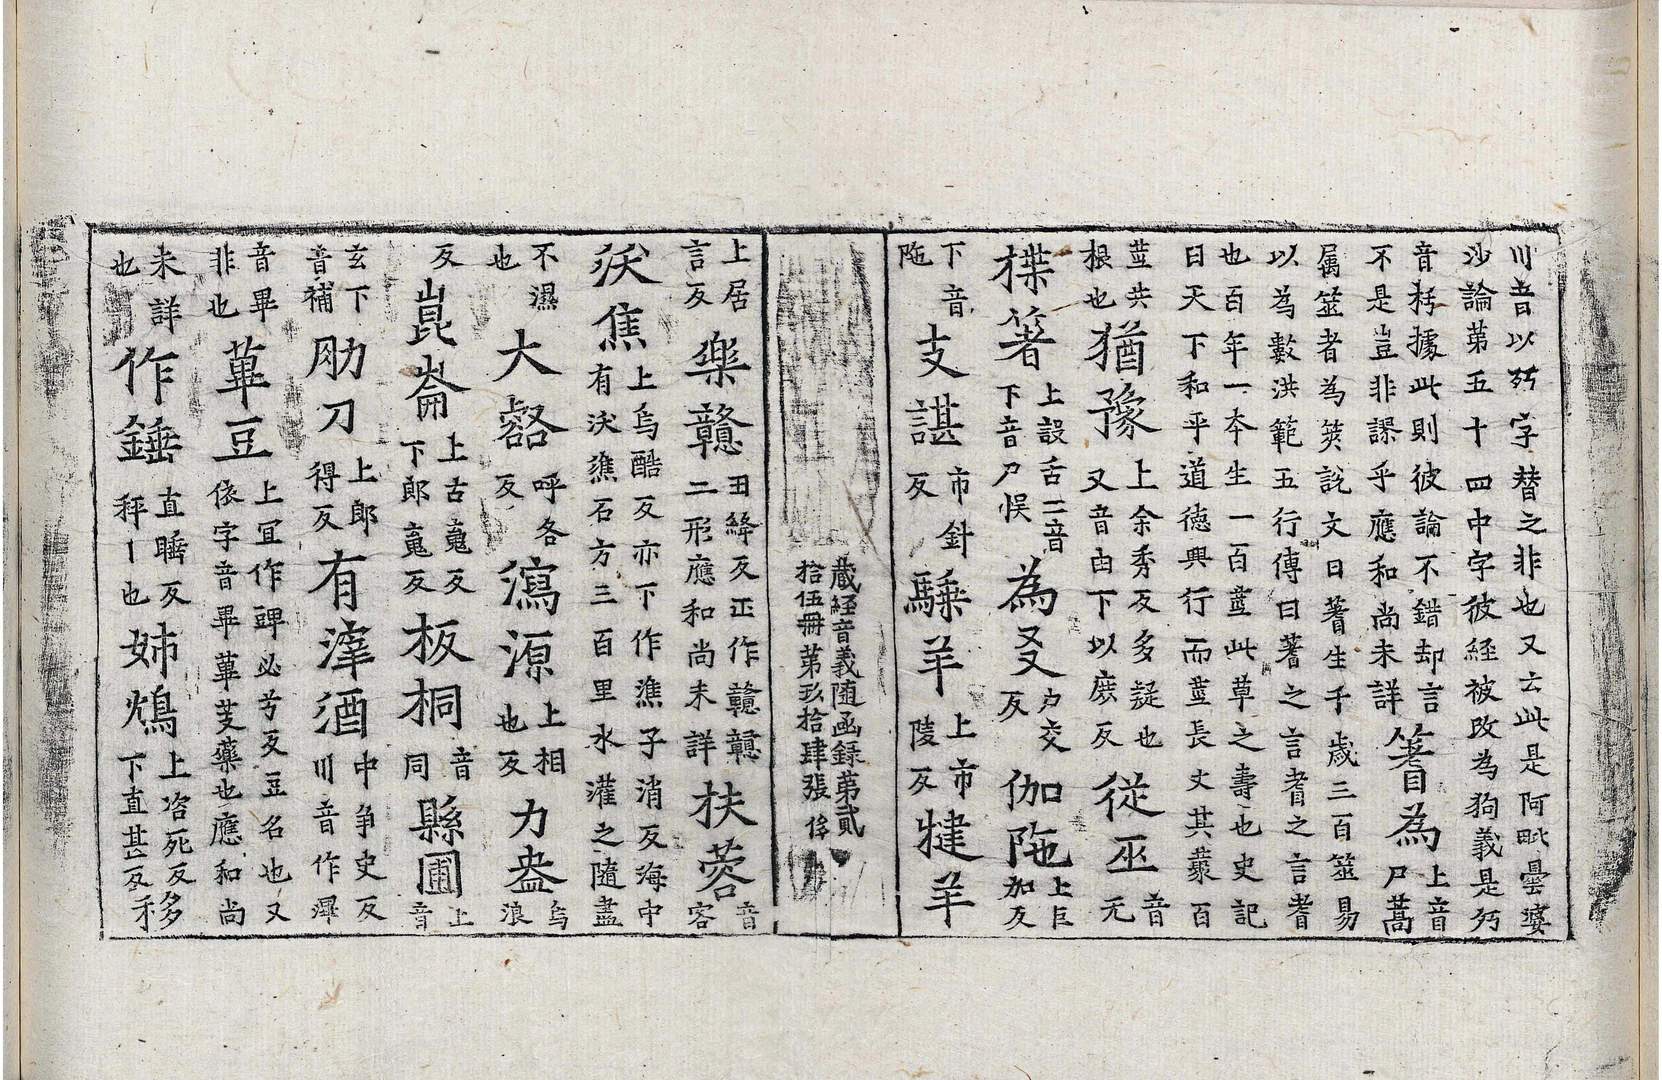 川音以㱙字替之非也又云此是阿毗曇婆
沙論第五十四中字彼経被改為狗義是㱙
音栝據此則彼論不錯却言
不是豈非謬乎應和尚未詳
蓍為
上音
尸蒿
属筮者為筴說文曰蓍生千歲三百筮易
以為數洪範五行傳曰蓍之言耆之言耆
也百年一本生一百莖此草之壽也史記
曰天下和平道徳興行而莖長丈其藂百
莖共
根也
猶豫
上余秀反多疑也
又音由下以庶反
從巫
音
无
揲蓍
上設舌二音
下音尸悮
為叉
交
反
伽陁
上巨
加反
下音
陁
支諶
市針
反
騬羊
上市
陵反
犍羊
藏経音義随函録第貳
拾伍冊第玖拾肆張 俻
上居
言反
樂戇
丑絳反正作戇戇
二形應和尚未詳
扶蓉
音
容
焦
上烏酷反亦下作潐子消反海中
有沃潐石方三百里水灌之隨盡
不濕
也
大谿
呼各
反
瀉源
上相
也反
力盎
烏
浪
反
崑崙
上古䰟反
下郎䰟反
板桐
音
同
縣圃
上
音
玄下
音補
朸刀
上郎
得反
有滓酒
中争史反
川音作滓
音畢
非也
蓽豆
上冝作豍必兮反豆名也又
依字音畢蓽茇藥也應和尚
未詳
也
作錘
直睡反
秤丨也
姊鴆
上咨死反移
下直甚反